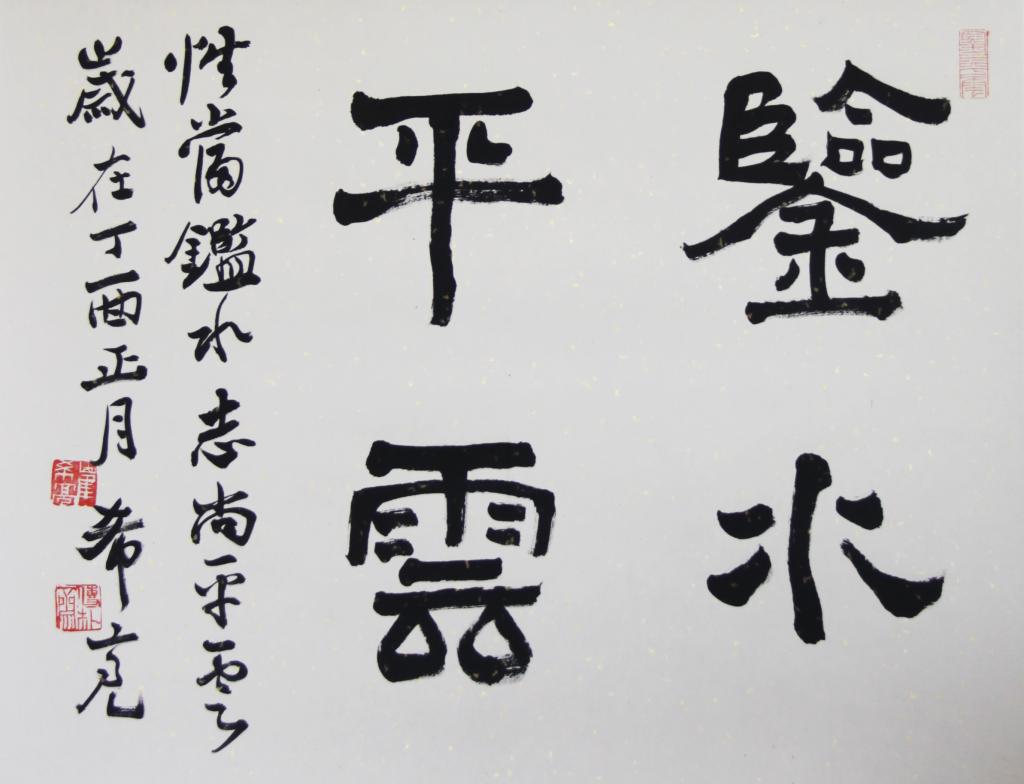 鑒水
平雲
性當鑑水志尚平雲
歲在丁酉正月 希亮
崔希亮